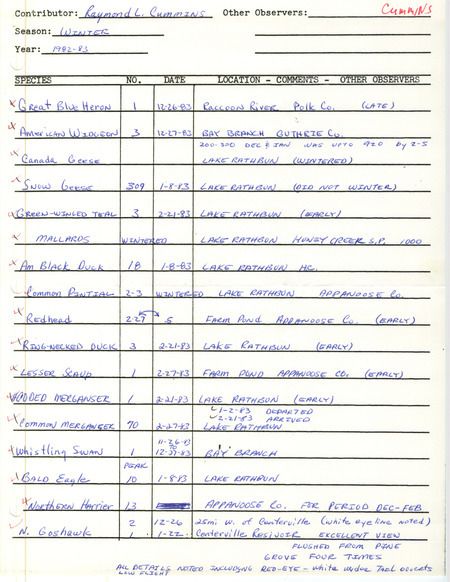 Contributor: Raymond L. Cummins Other Observers: Cummins
Season: Winter
Year: 1982-83
SPECIES NO. DATE LOCATION - COMMENTS - OTHER OBSERVERS
Great Blue Heron 1 12-26-83 Raccoon River Polk Co. (Late)
American Widgeon 3 12-27-83 Bay Branch Guthrie Co.
200-300 Dec & Jan was upto 920 by 2-5
Canada Geese Lake Rathbun (Wintered)
Snow Geese 309 1-8-83 Lake Rathbun (Did not Winter)
Green-Winged Teal 3 2-21-83 Lake Rathbun (Early)
Mallards Wintered Lake Rathbun Honey Creek S.P. 1000
Am Black Duck 18 1-8-83 Lake Rathbun
Common Pintial 2-3 Wintered Lake Rathbun Appanoose Co.
Redhead 2-27 5 Farm Pond Appanoose Co. (Early)
Ring-Necked Duck 3 2-21-83 Lake Rathbun (Early)
Lesser Scaup 1 2-27-83 Farm Pond Appanoose Co. (Early)
Hooded Merganser 1 2-21-83 Lake Rathbun (Early)
1-2-83 Departed
2-21-83 Arrived
Common Merganser 70 2-27-83 Lake Rathbun
11-26-83
to
Whistling Swan 1 12-27-83 Bay Branch
Peak
Bald Eagle 10 1-8-83 Lake Rathbun
Northern Harrier 13 Appanoose Co. For Period Dec-Feb
2 12-26 25mi w. of Centerville (white eyeline noted)
N. Goshawk 1 1-22 Centerville Resivoir Excellent View
Flushed from Pine
Grove Four Times
All Details noted including Red-Eye - white under Tail coverts
Low Flight